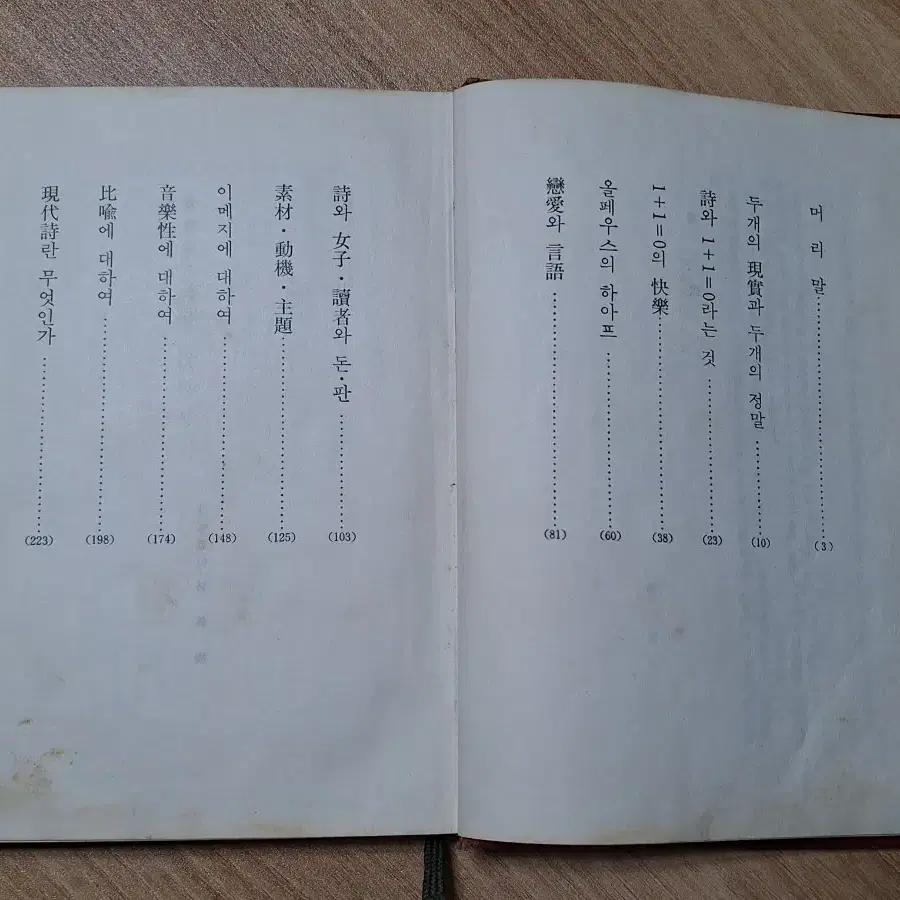 머 리 말 ……………………… (3)
두개의 現實과 두개의 정말 ………… (10)
詩와 1+1=0라는 것 ……………… (23)
1+1=0의 快樂 …………………… (38)
올페우스의 하아프 ………………… (60)
戀愛와 言語 ……………………… (81)
詩와 女子・讀者와 돈・판 ………… (103)
素材・動機・主題 ………………… (125)
이메지에 대하여 ………………… (148)
音樂性에 대하여 ………………… (174)
比喩에 대하여 …………………… (198)
現代詩란 무엇인가 ……………… (223)